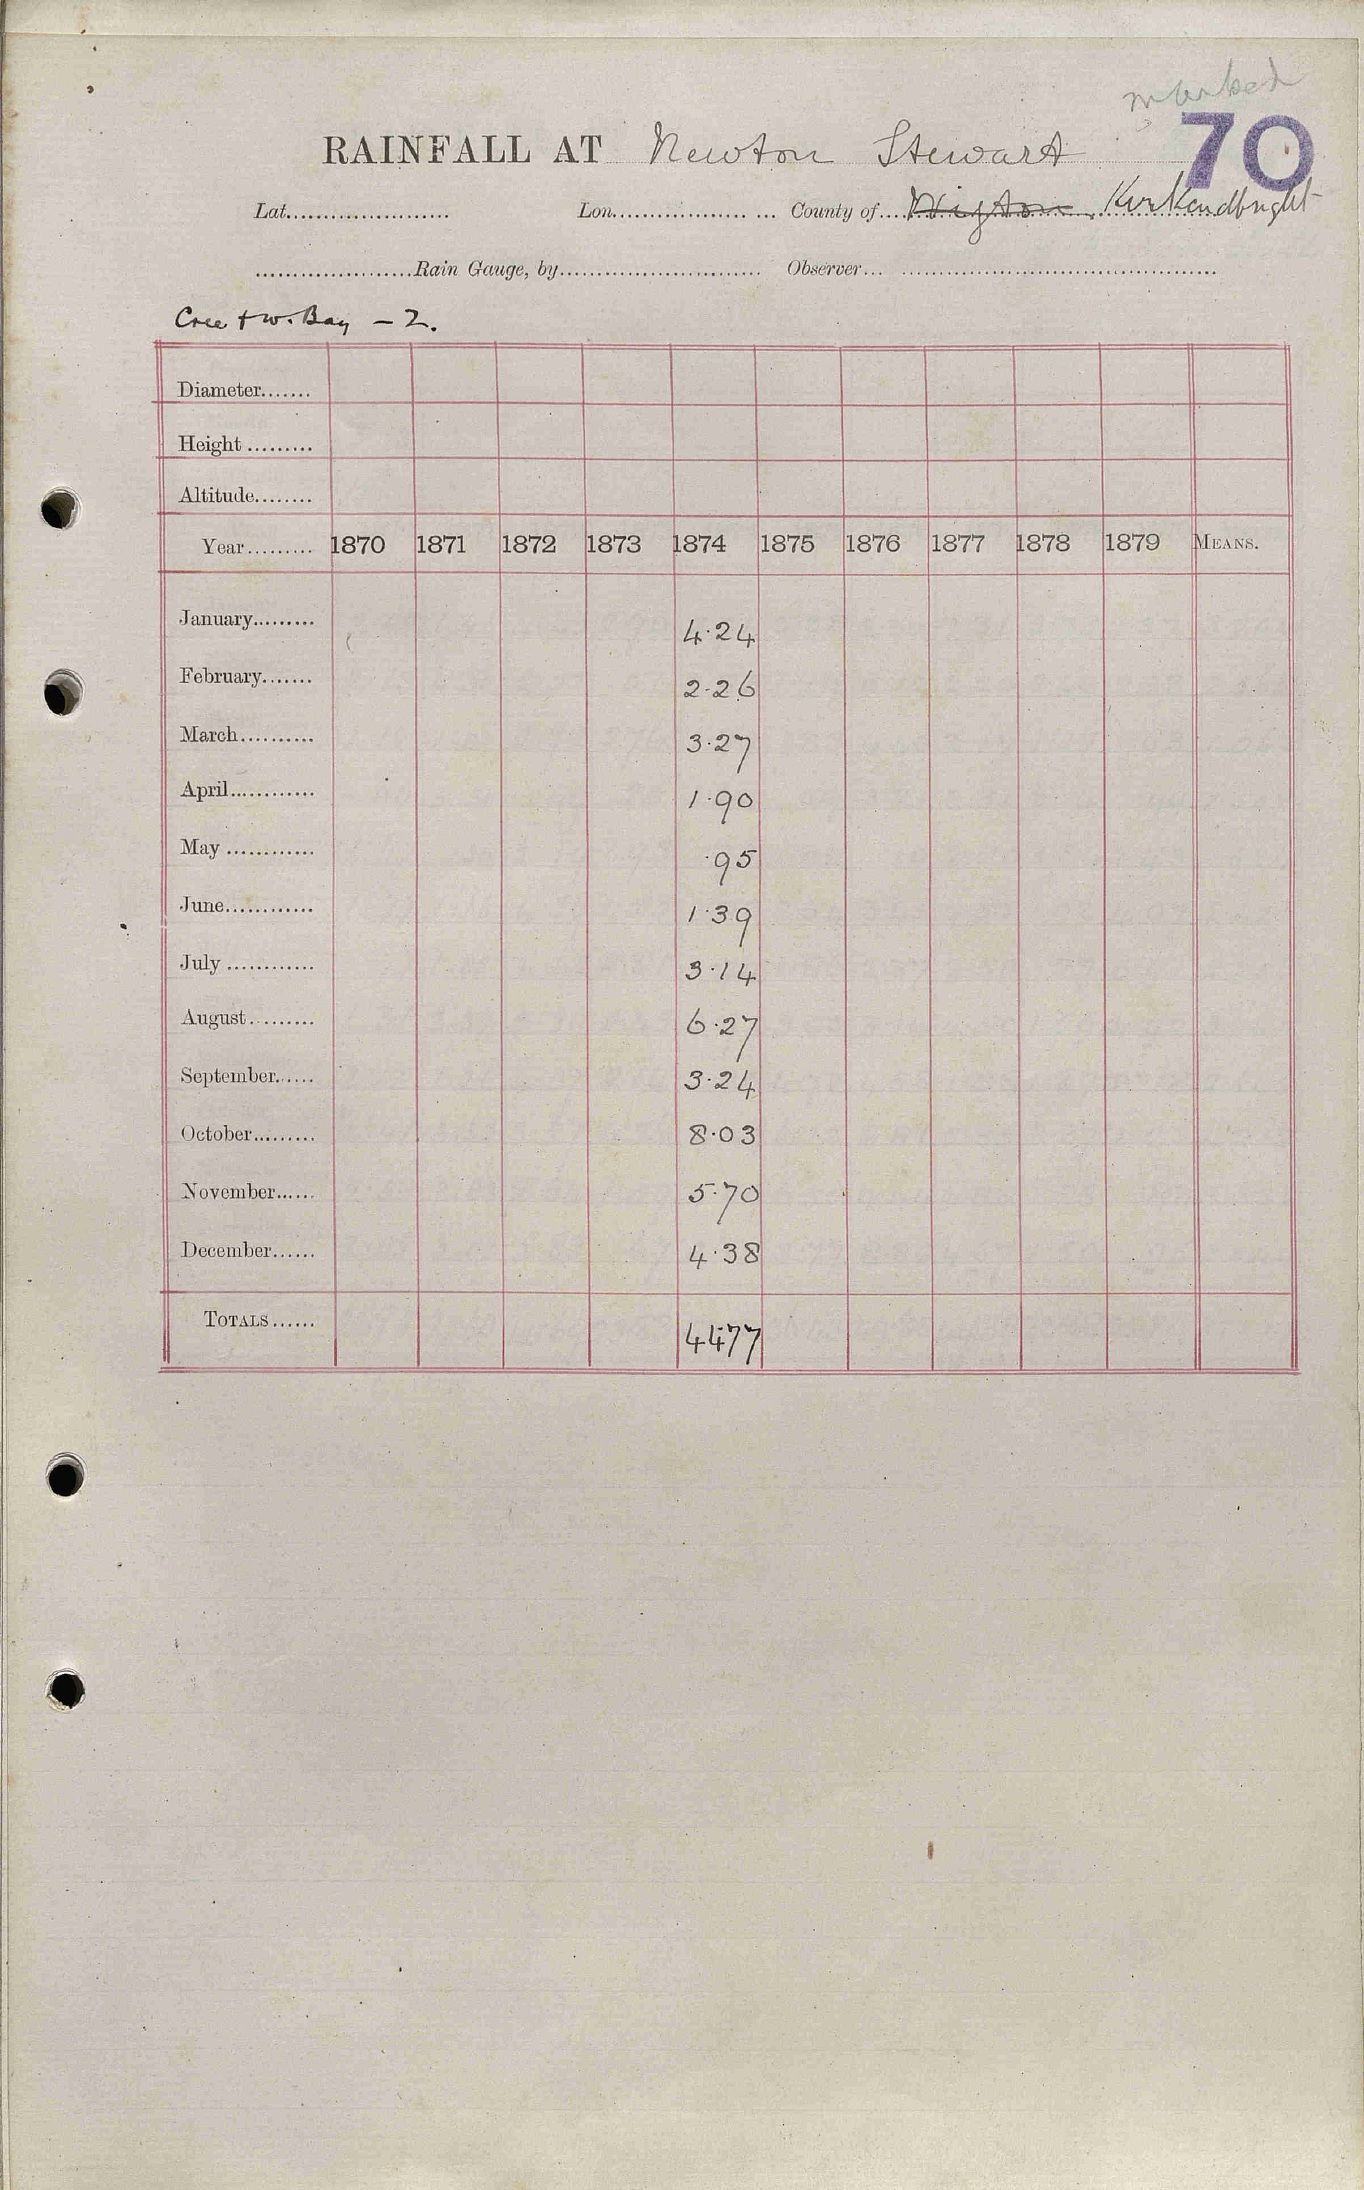 marked
70
RAINFALL AT Newton Stewart
Lat...................... Lon.................. ... County of.... Wigton Kirkcudbright
......................Rain Gauge, by............................. Observer... .............................................
Cree & W. Bay – 2.
Diameter.......
Height .........
Altitude........
Year......... 1870 1871 1872 1873 1874 1875 1876 1877 1878 1879 MEANS.
January......... 4.24
February....... 2.26
March.......... 3.27
April............ 1.90
May ............ .95
June............ 1.39
July ............ 3.14
August.......... 6.27
September...... 3.24
October......... 8.03
November...... 5.70
December...... 4.38
TOTALS...... 44.77